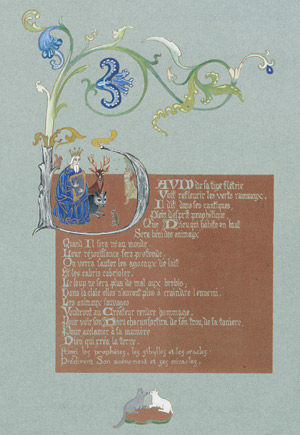 DAVID de sa tige flétrie
Voit refleurir les verts rameaux.
Il dit dans les cantiques
Plein d'esprit prophétique
Que Dieu qui habite en haut
Sera bon des animaux
Quand Il sera né au monde
Leur réjouissance sera profonde.
On verra sauter les agneaux de lait
Et les cabris cabrioler.
Le loup ne fera plus de mal aux brebis;
Dans la claie elles n'auront plus à craindre l'ennemi.
Les animaux sauvages
Voudront au Créateur rendre hommage.
Pour voir son Dieu chacun sortira de son trou, de sa tanière,
Pour acclamer à sa manière
Dieu qui créa la terre.
Ainsi les prophètes, les sibylles et les oracles
Prédirent Son avènement et ses miracles.